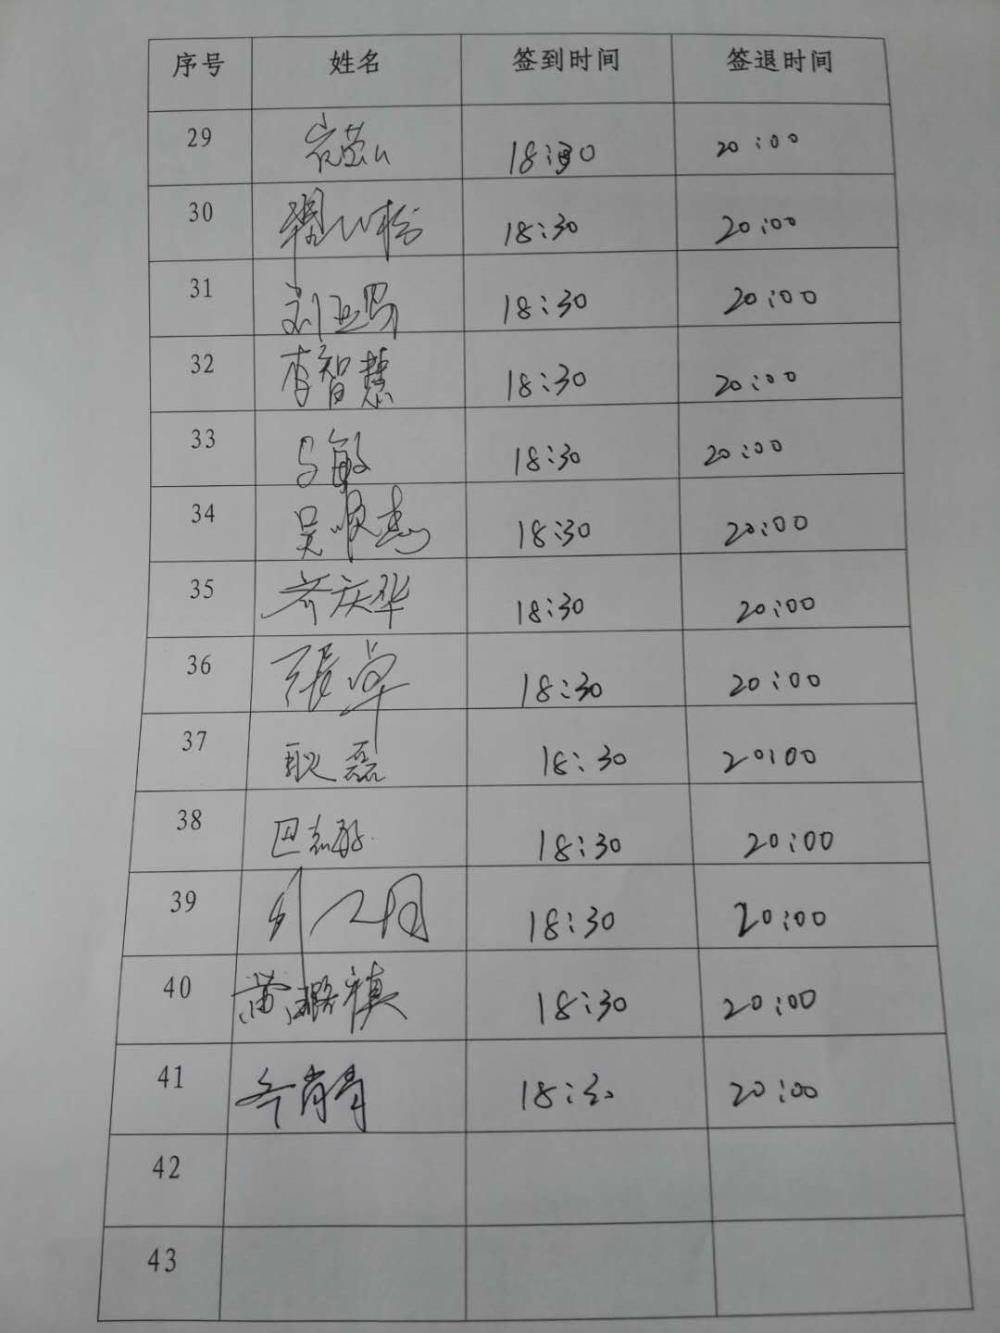 序号 姓名 签到时间 签退时间
29 18:30 20:00
30 18:30 20:00
31 刘亚男 18:30 20:00
32 李智慧 18:30 20:00
33 马敏 18:30 20:00
34 吴顺杰 18:30 20:00
35 齐庆华 18:30 20:00
36 張卓 18:30 20:00
37 耿磊 18:30 20:00
38 巴志敏 18:30 20:00
39 18:30 20:00
40 黄璐禛 18:30 20:00
41 18:30 20:00
42
43